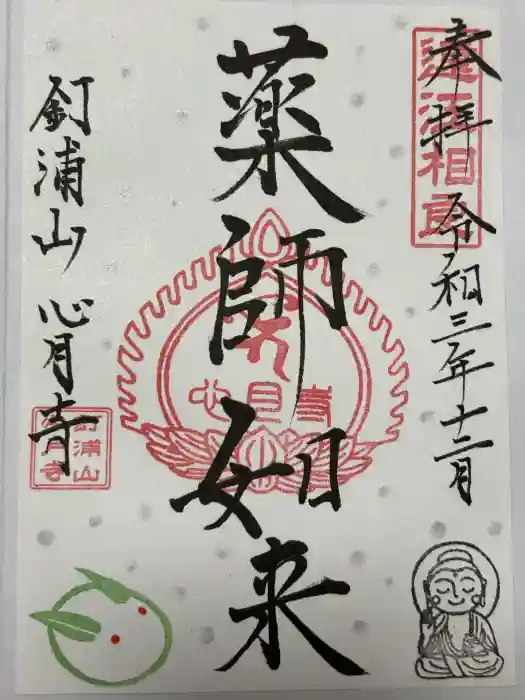 奉拝 令和三年十二月
遠江相良
薬師如来
心月寺
釘浦山 心月寺
釘浦山
心月寺